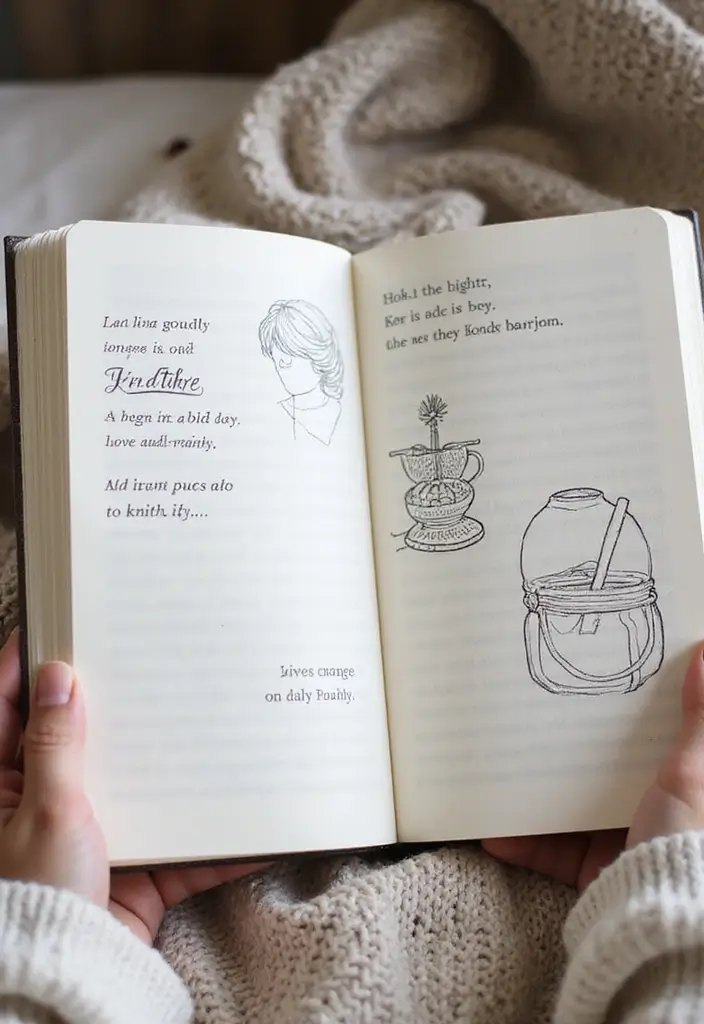 Lad lina goudly
iongee is ond
A begn in a bld day.
love audl-rainly.
Ald irant pucs alo
to knith ily....
Lives cnange
on daly Poubly.
Hok.t the bightr,
Ker is adc is bey.
the nes they Konds barrjom.